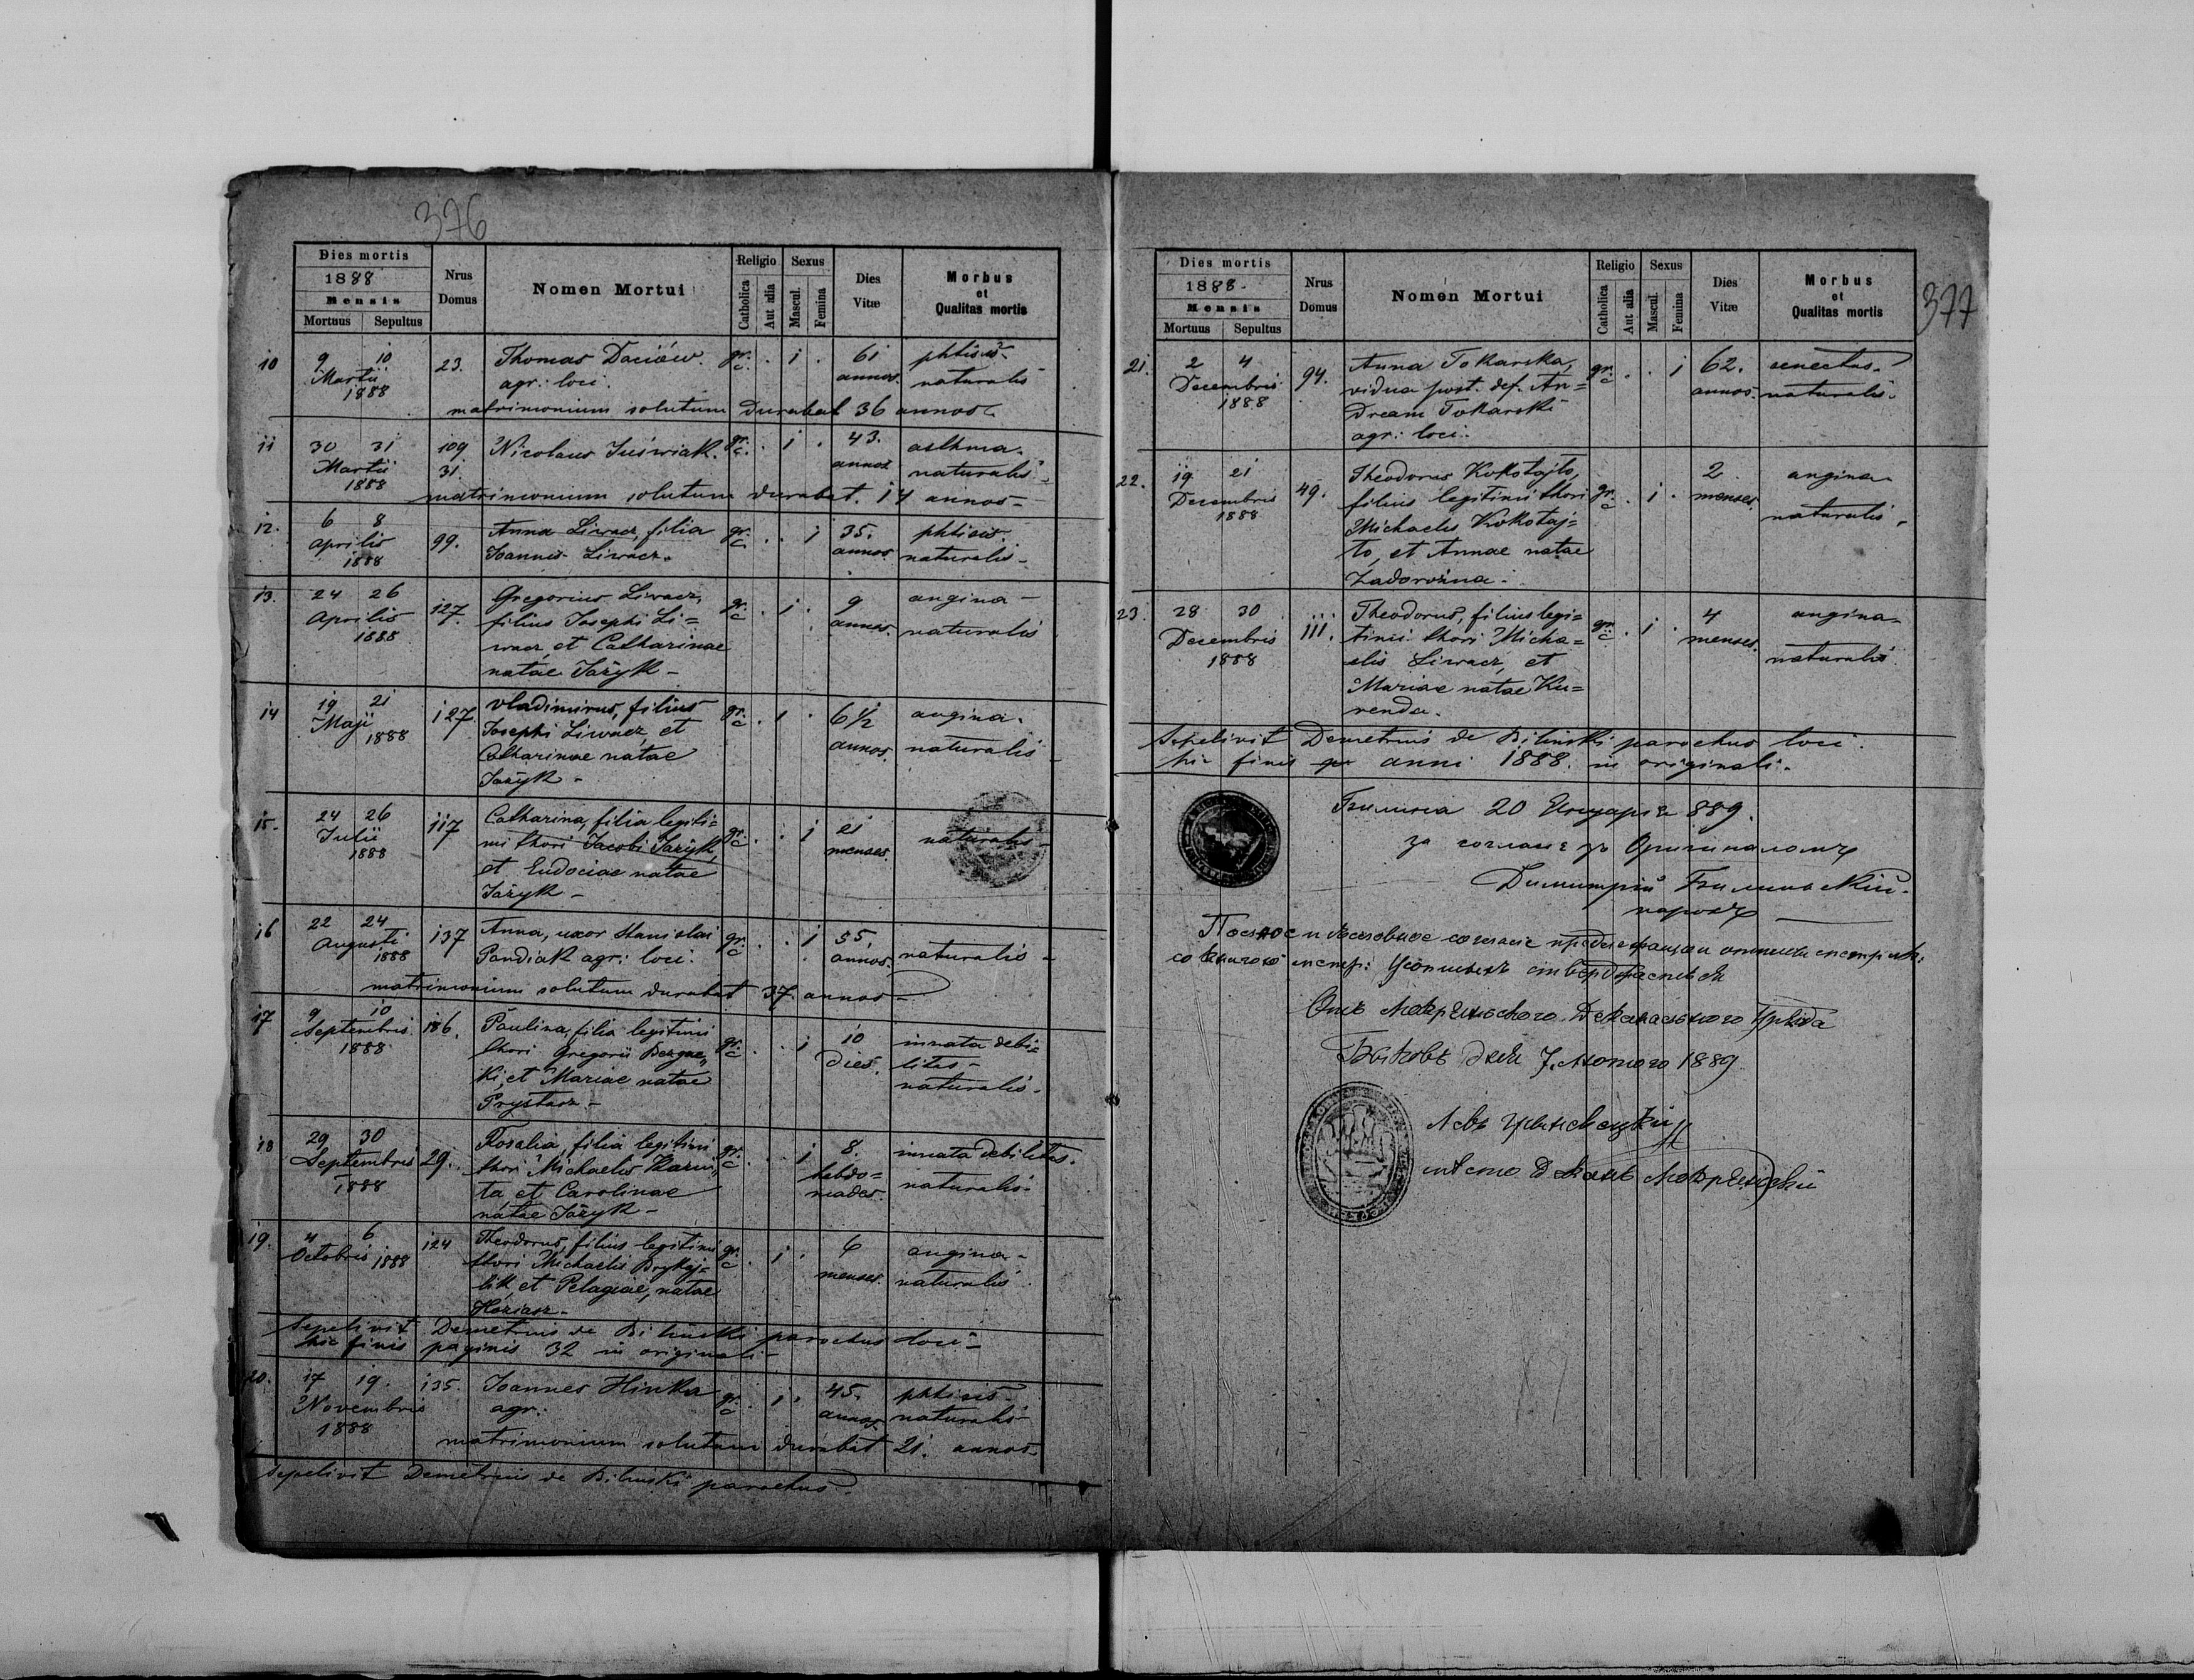 376
Dies mortis
1888
Mensis
Mortuus Sepultus
Nrus Domus
Nomen Mortui
Religio
Catholica
Aut alia
Sexus
Mascul.
Femina
Dies Vitæ
Morbus et Qualitas mortis
10 9 10 23. Thomas Daciów gr. c. . 1 . 61 phtisis.
Martii 1888 agr: loci. annos. naturalis
matrimonium solutum durabat 36 annos.
11 30 31 109 Nicolaus Juświak. gr. c. . 1 . 43. asthma.
Martii 1888 31. annos naturalis
matrimonium solutum durabat. 14 annos-
12. 6 8 99. Anna Liwacz, filia gr. c. . . 1 35. phtisis.
Aprilis 1888 Joannis Liwacz. annos. naturalis-
13. 24 26 127. Gregorius Liwacz, gr. c. . 1 . 9 angina-
Aprilis 1888 filius Josephi Li= annos. naturalis
wacz, et Catharinae
natae Jażyk-
14 19 21 127. Vladimirus, filius gr. c. . 1 . 6 1/2 angina.
Maji 1888 Josephi Liwacz, et annos. naturalis-
Catharinae natae
Jażyk-
15. 24 26 117 Catharina, filia legiti= gr. c. . . 1 21
Julii 1888 mi thori Jacobi Jażyk, menses. naturalis-
et Eudociae natae
Jażyk-
16 22 24 137 Anna, uxor Stanislai gr. c. . . 1 55.
Augusti 1888 Pandiak agr: loci. annos. naturalis-
matrimonium solutum durabat 37. annos-
17 9 10 186. Paulina, filia legitimi gr. c. . . 1 10 innata debi=
Septembris 1888 thori Gregorii dies. litas-
ki, et Mariae natae naturalis.
Prystasz.-
18 29 30 29. Rosalia, filia legitimi gr. c. . . 1 8. innata debilitas.
Septembris 1888 thori Michaelis hebdo=
ta, et Carolinae mades. naturalis.
natae Jażyk-
19. 4 6 124 Theodorus, filius legitimi gr. c. . 1 . 6 angina-
Octobris 1888 thori Michaelis menses. naturalis
lik, et Pelagiae, natae
Sepelivit Demetrius de Biliński parochus loci-
hic finis paginis 32 in originali-
20. 17 19. 135. Joannes Hinka gr. c. . 1 . 45. phtisis.
Novembris 1888 agr. annos. naturalis-
matrimonium solutum durabat 21. annos.
Sepelivit Demetrius de Biliński parochus.
377
Dies mortis
1888.
Mensis
Mortuus Sepultus
Nrus Domus
Nomen Mortui
Religio
Catholica
Aut alia
Sexus
Mascul.
Femina
Dies Vitæ
Morbus et Qualitas mortis
21. 2 4 94. Anna Tokarska, gr. c. . . 1 62. senectus.
Decembris 1888 vidua post. def. An= annos. naturalis.
dream Tokarski
agr: loci.
22. 19 21 49. Theodorus Kokotajło, gr. c. . 1 . 2 angina.
Decembris 1888 filius legitimi thori menses. naturalis.
Michaelis Kokotaj=
ło, et Annae natae
Zadorożna.
23. 28 30 111. Theodorus, filius legi= gr. c. . 1 . 4 angina.
Decembris 1888 timi thori Micha= menses. naturalis.
elis Liwacz, et
Mariae natae Ku=
renda.
Sepelivit Demetrius de Biliński parochus loci.
hic finis anni 1888. in originali.
20 889.
за согласіе зъ Оригиналомъ
Димитрій Билинскій.
парохъ
7. Лютого 1889